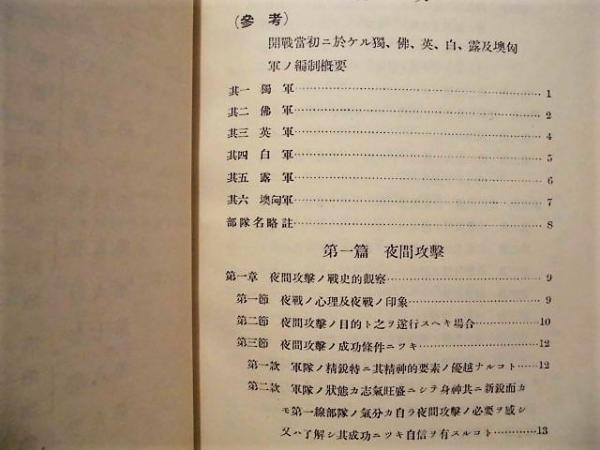 （參考）
開戰當初ニ於ケル獨、佛、英、白、露及墺匈
軍ノ編制概要
其一　獨　軍……………………1
其二　佛　軍……………………2
其三　英　軍……………………4
其四　白　軍……………………5
其五　露　軍……………………6
其六　墺匈軍……………………7
部隊名略註……………………8
第一篇　夜間攻擊
第一章　夜間攻擊ノ戰史的觀察……………………9
第一節　夜戰ノ心理及夜戰ノ印象……………………9
第二節　夜間攻擊ノ目的ト之ヲ遂行スヘキ場合……………………10
第三節　夜間攻擊ノ成功條件ニツキ……………………12
第一款　軍隊ノ精銳特ニ其精神的要素ノ優越ナルコト……………………12
第二款　軍隊ノ狀態カ志氣旺盛ニシテ身神共ニ新銳而カ
モ第一線部隊ノ氣分カ自ラ夜間攻擊ノ必要ヲ感シ
又ハ了解シ其成功ニツキ自信ヲ有スルコト……………………13